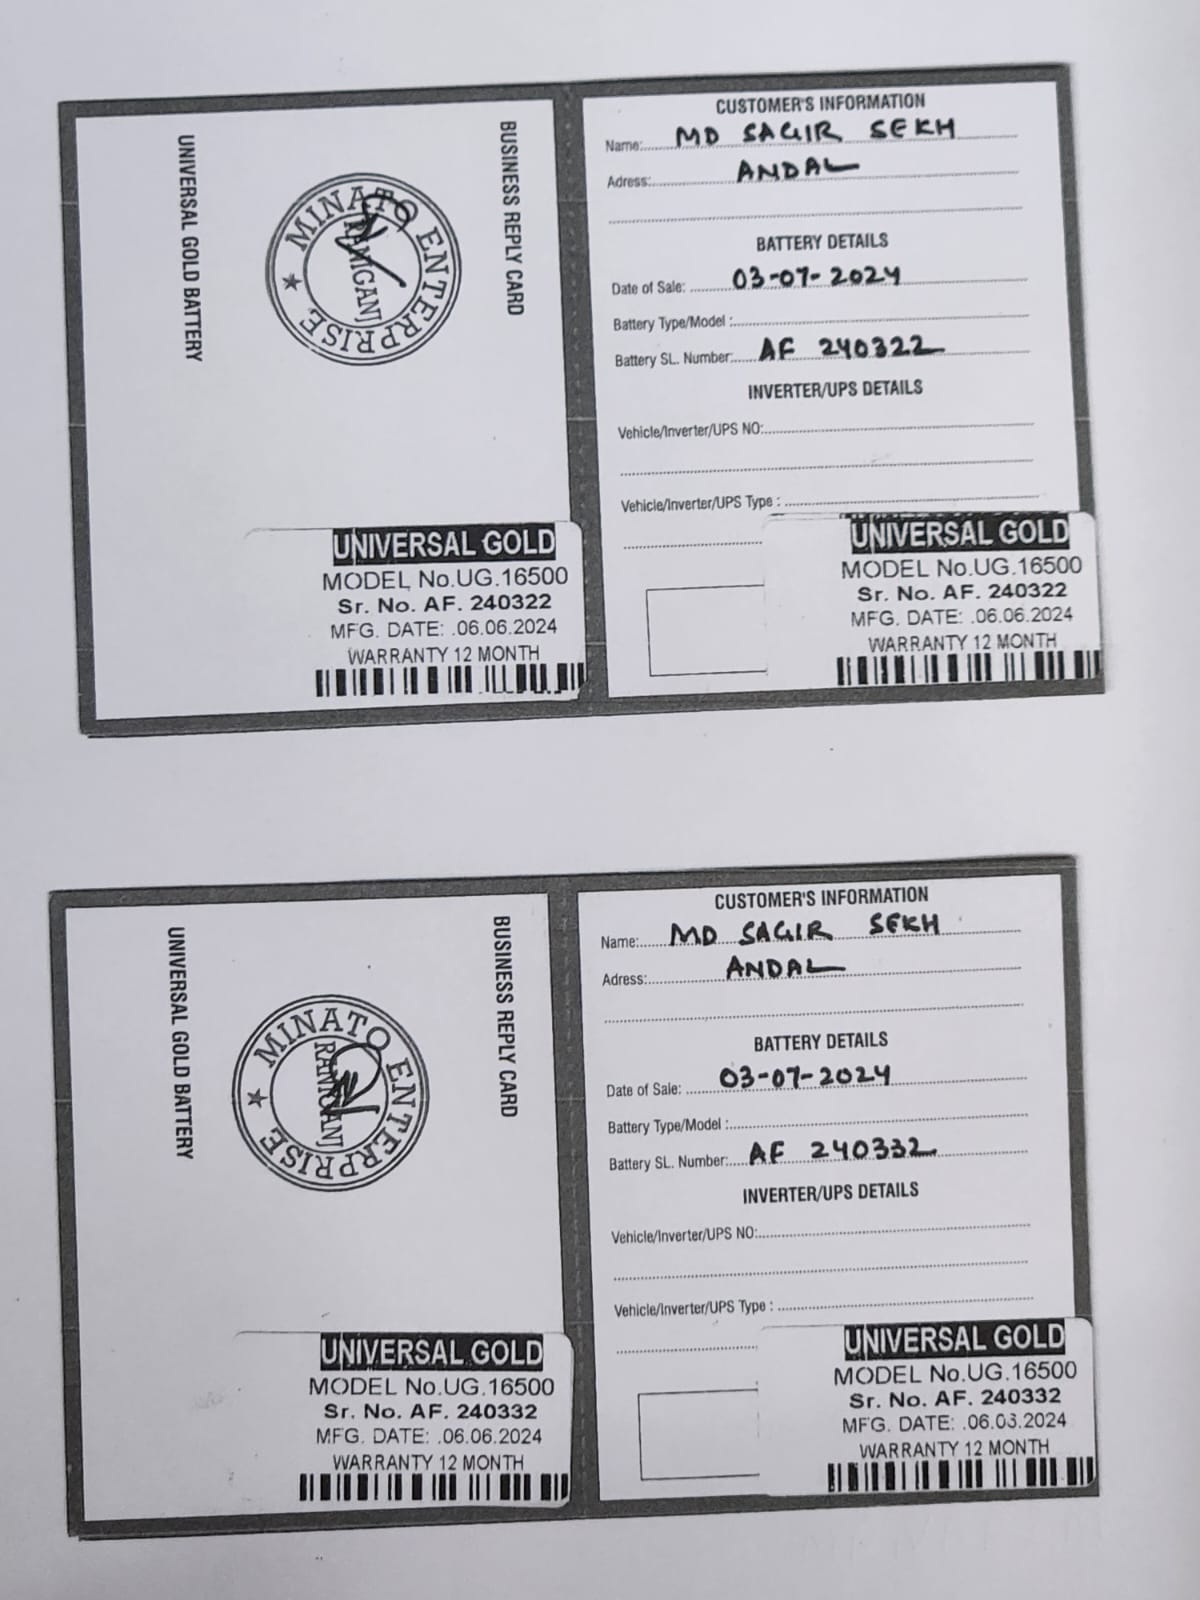 UNIVERSAL GOLD BATTERY
MINATO ENTERPRISE
RANIGANJ
BUSINESS REPLY CARD
UNIVERSAL GOLD
MODEL No.UG.16500
Sr. No. AF. 240322
MFG. DATE: .06.06.2024
WARRANTY 12 MONTH
CUSTOMER'S INFORMATION
Name: MD SAGIR SEKH
Adress: ANDAL
BATTERY DETAILS
Date of Sale: 03-07-2024
Battery Type/Model :
Battery SL. Number: AF 240322
INVERTER/UPS DETAILS
Vehicle/Inverter/UPS NO:
Vehicle/Inverter/UPS Type :
UNIVERSAL GOLD
MODEL No.UG.16500
Sr. No. AF. 240322
MFG. DATE: .06.06.2024
WARRANTY 12 MONTH
UNIVERSAL GOLD BATTERY
MINATO ENTERPRISE
RANIGANJ
BUSINESS REPLY CARD
UNIVERSAL GOLD
MODEL No.UG.16500
Sr. No. AF. 240332
MFG. DATE: .06.06.2024
WARRANTY 12 MONTH
CUSTOMER'S INFORMATION
Name: MD SAGIR SEKH
Adress: ANDAL
BATTERY DETAILS
Date of Sale: 03-07-2024
Battery Type/Model :
Battery SL. Number: AF 240332
INVERTER/UPS DETAILS
Vehicle/Inverter/UPS NO:
Vehicle/Inverter/UPS Type :
UNIVERSAL GOLD
MODEL No.UG.16500
Sr. No. AF. 240332
MFG. DATE: .06.06.2024
WARRANTY 12 MONTH